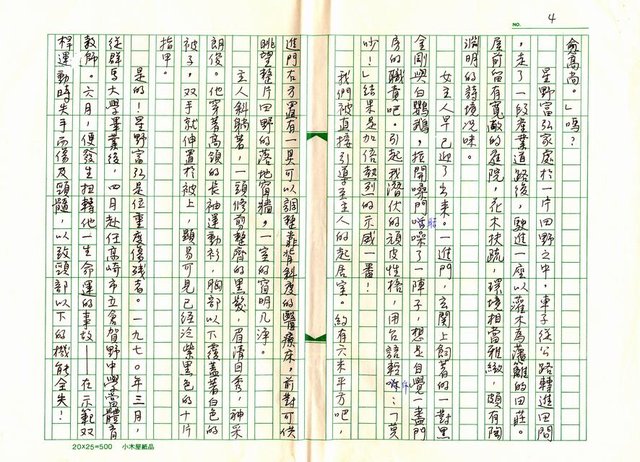 NO. 4
愈高尚。」嗎?
星野富弘家處於一片田野之中,車子從公路轉進田間
,走了一段產業道路後,駛進一座以灌木為藩籬的田莊。
屋前留有寬敞的庭院,花木扶疏,環境相當雅緻,頗有陶
淵明的詩境況味。
女主人早已迎了出來。一進門,玄關上飼著的一對黑
金剛與白鸚鵡,拉開嗓門聒噪了一陣子,想是自覺一盡門
房的職責吧。引起我潛伏的頑皮性格,用台語輕嘛:「莫
吵!」結果是加倍熱烈的示威一番!
我們被直接引導至主人的起居室。約有六米平方吧,
進門右方置有一具可以調整靠背斜度的醫療床,前對可供
眺望整片田野的落地窗牆,一室的窗明几淨。
主人斜躺著,一頭修剪整齊的黑髮,眉清目秀,神采
朗俊。他穿著高領的長袖運動衫,胸部以下覆蓋著白色的
被子,双手就伸置於被上,顯易可見已經泛紫黑色的十片
指甲。
是的!星野富弘是位重度傷殘者。一九七〇年三月,
從群馬大學畢業後,四月赴任高崎市立倉賀野中學當體育
教師。六月,便發生扭轉他一生命運的事故——在示範双
桿運動時失手而傷及頸髓,以致頸部以下的機能全失!
20×25=500 小木屋紙品